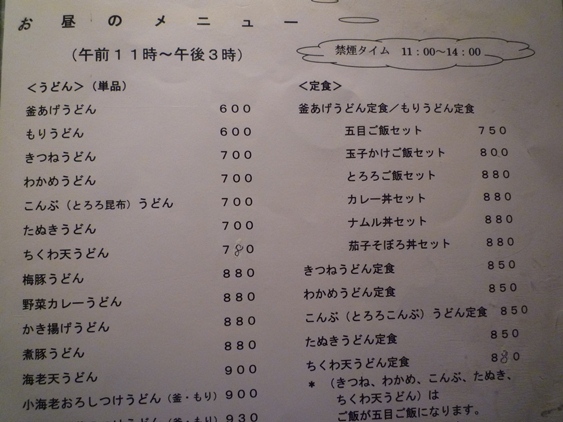 お昼のメニュー
（午前１１時～午後３時）
禁煙タイム　11：00～14：00
＜うどん＞（単品）
釜あげうどん　６００
もりうどん　６００
きつねうどん　７００
わかめうどん　７００
こんぶ（とろろ昆布）うどん　７００
たぬきうどん　７００
ちくわ天うどん　７８０
梅豚うどん　８８０
野菜カレーうどん　８８０
かき揚げうどん　８８０
煮豚うどん　８８０
海老天うどん　９００
小海老おろしつけうどん（釜・もり）９００
うどん（釜・もり）９３０
＜定食＞
釜あげうどん定食／もりうどん定食
五目ご飯セット　７５０
玉子かけご飯セット　８００
とろろご飯セット　８８０
カレー丼セット　８８０
ナムル丼セット　８８０
茄子そぼろ丼セット　８８０
きつねうどん定食　８５０
わかめうどん定食　８５０
こんぶ（とろろこんぶ）うどん定食　８５０
たぬきうどん定食　８５０
ちくわ天うどん定食　８８０
＊　（きつね、わかめ、こんぶ、たぬき、
ちくわ天うどん）は
ご飯が五目ご飯になります。